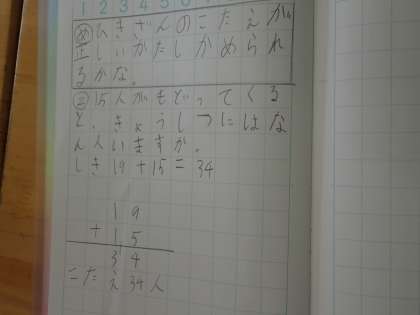 1 2 3 4 5 6
め ひきざんのこたえが
正しいかたしかめられ
るかな。
② 15人がもどってくる
と、きょうしつにはな
ん人いますか。
しき 19+15=34
19
+15
34
こたえ 34人